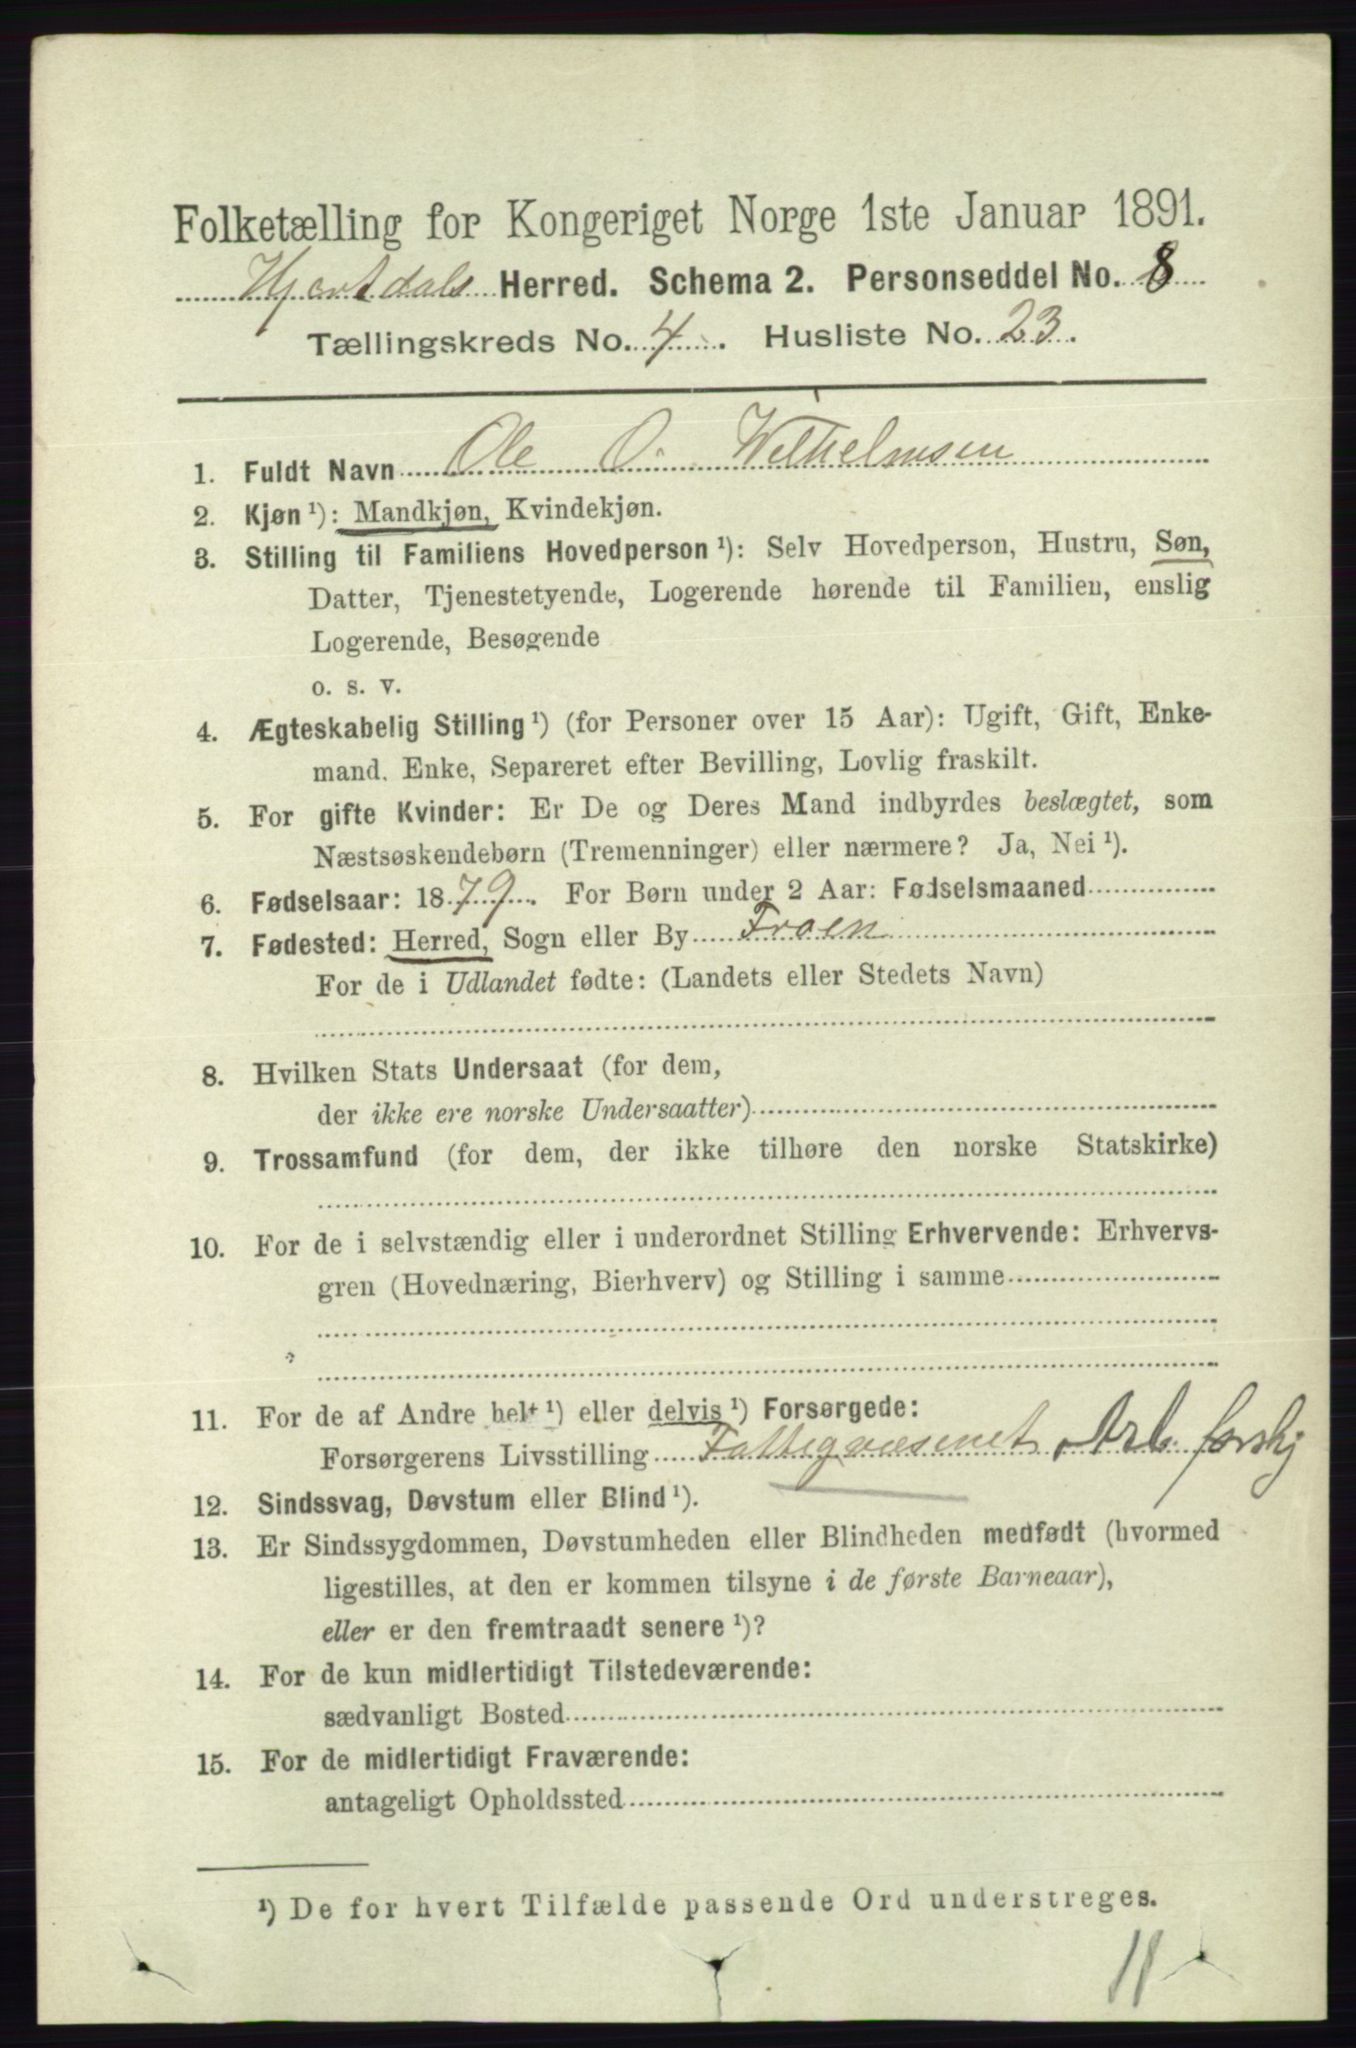 Folketælling for Kongeriget Norge 1ste Januar 1891.
Hjertdals Herred. Schema 2. Personseddel No. 8
Tællingskreds No. 4. Husliste No. 23.
1. Fuldt Navn Ole O. Wilhelmsen
2. Kjøn ¹): Mandkjøn, Kvindekjøn.
3. Stilling til Familiens Hovedperson ¹): Selv Hovedperson, Hustru, Søn,
Datter, Tjenestetyende, Logerende hørende til Familien, enslig
Logerende, Besøgende
o. s. v.
4. Ægteskabelig Stilling ¹) (for Personer over 15 Aar): Ugift, Gift, Enke-
mand. Enke, Separeret efter Bevilling, Lovlig fraskilt.
5. For gifte Kvinder: Er De og Deres Mand indbyrdes beslægtet, som
Næstsøskendebørn (Tremenninger) eller nærmere? Ja, Nei ¹).
6. Fødselsaar: 1879. For Børn under 2 Aar: Fødselsmaaned
7. Fødested: Herred, Sogn eller By Froen
For de i Udlandet fødte: (Landets eller Stedets Navn)
8. Hvilken Stats Undersaat (for dem,
der ikke ere norske Undersaatter)
9. Trossamfund (for dem, der ikke tilhøre den norske Statskirke)
10. For de i selvstændig eller i underordnet Stilling Erhvervende: Erhvervs-
gren (Hovednæring, Bierhverv) og Stilling i samme
11. For de af Andre helt ¹) eller delvis ¹) Forsørgede:
Forsørgerens Livsstilling Fattigvæsenet Arb. forskj
12. Sindssvag, Døvstum eller Blind ¹).
13. Er Sindssygdommen, Døvstumheden eller Blindheden medfødt (hvormed
ligestilles, at den er kommen tilsyne i de første Barneaar),
eller er den fremtraadt senere ¹)?
14. For de kun midlertidigt Tilstedeværende:
sædvanligt Bosted
15. For de midlertidigt Fraværende:
antageligt Opholdssted
¹) De for hvert Tilfælde passende Ord understreges.
11